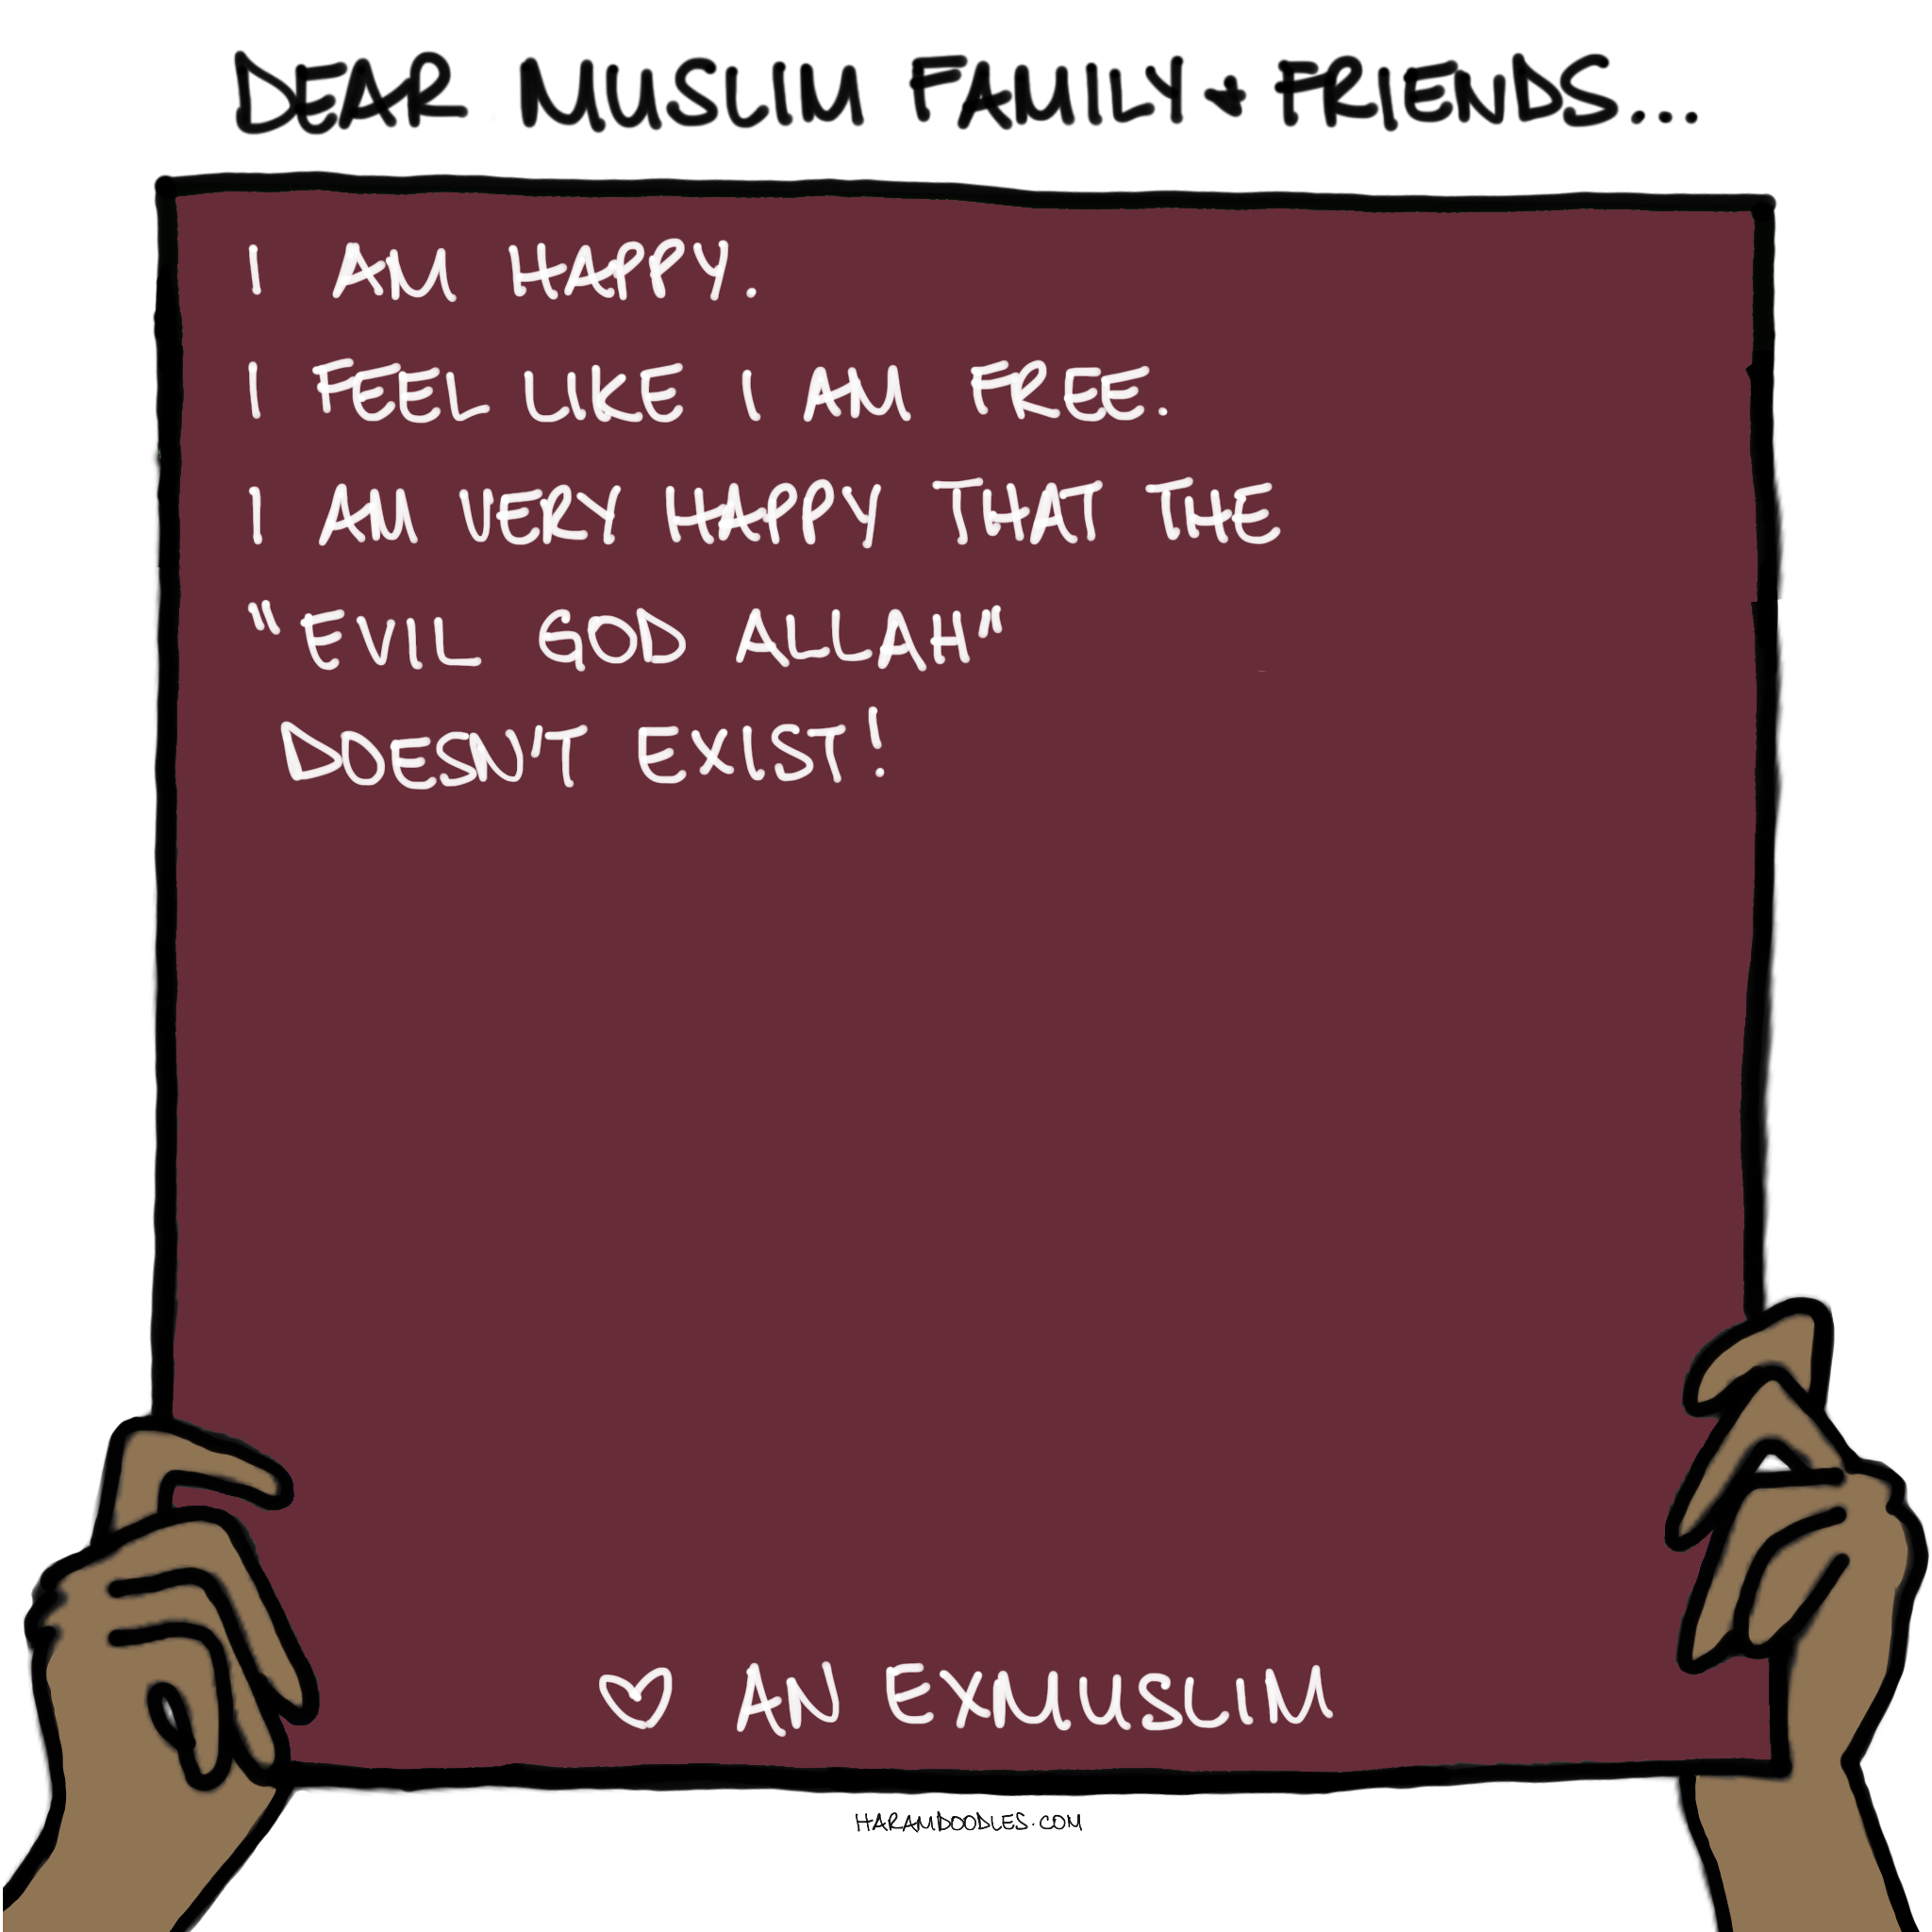 DEAR MUSLIM FAMILY + FRIENDS...
I AM HAPPY.
I FEEL LIKE I AM FREE.
I AM VERY HAPPY THAT THE
"EVIL GOD ALLAH"
DOESN'T EXIST!
♡ AN EXMUSLIM
HARAMDOODLES.COM